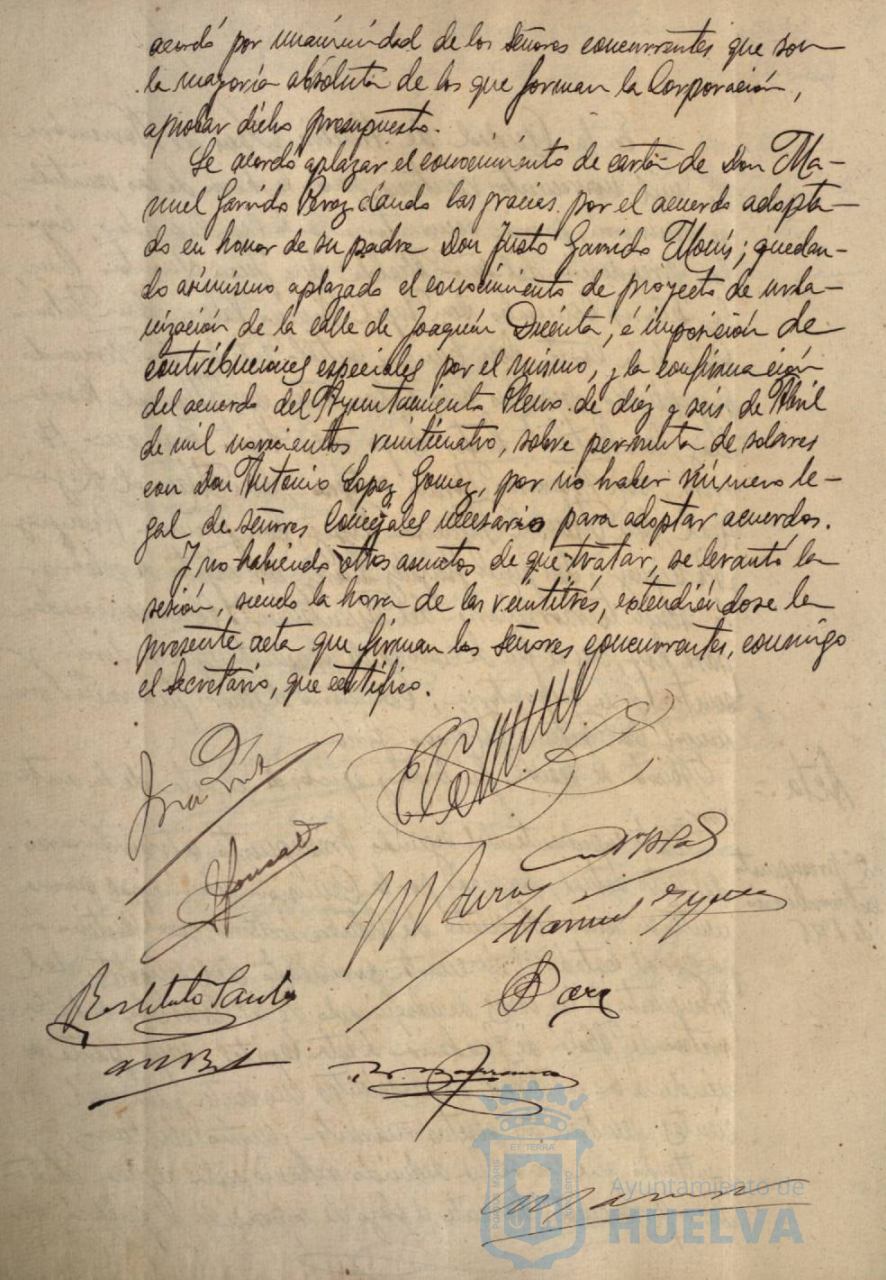 acordó por unanimidad de los Señores concurrentes que son
la mayoría absoluta de los que forman la Corporación,
aprobar dicho presupuesto.
Se acordó aplazar el conocimiento de carta de Don Ma-
nuel Garrido Perez dando las gracias por el acuerdo adopta-
do en honor de su padre Don Justo Garrido Mouis; quedan-
do asimismo aplazado el conocimiento de proyecto de urba-
nización de la calle de Joaquín Dicenta, é imposición de
contribuciones especiales por el mismo, y la confirmación
del acuerdo del Ayuntamiento Pleno de diez y seis de Abril
de mil novecientos veinticuatro, sobre permuta de solares
con Don Antonio Lopez Gomez, por no haber número le-
gal de señores Concejales necesario para adoptar acuerdos.
Y no habiendo otros asuntos de que tratar, se levantó la
sesión, siendo la hora de las veintitrés, extendiéndose la
presente acta que firman los Señores concurrentes, conmigo
el Secretario, que certifico.
Manuel
Restituto
Ayuntamiento de
HUELVA